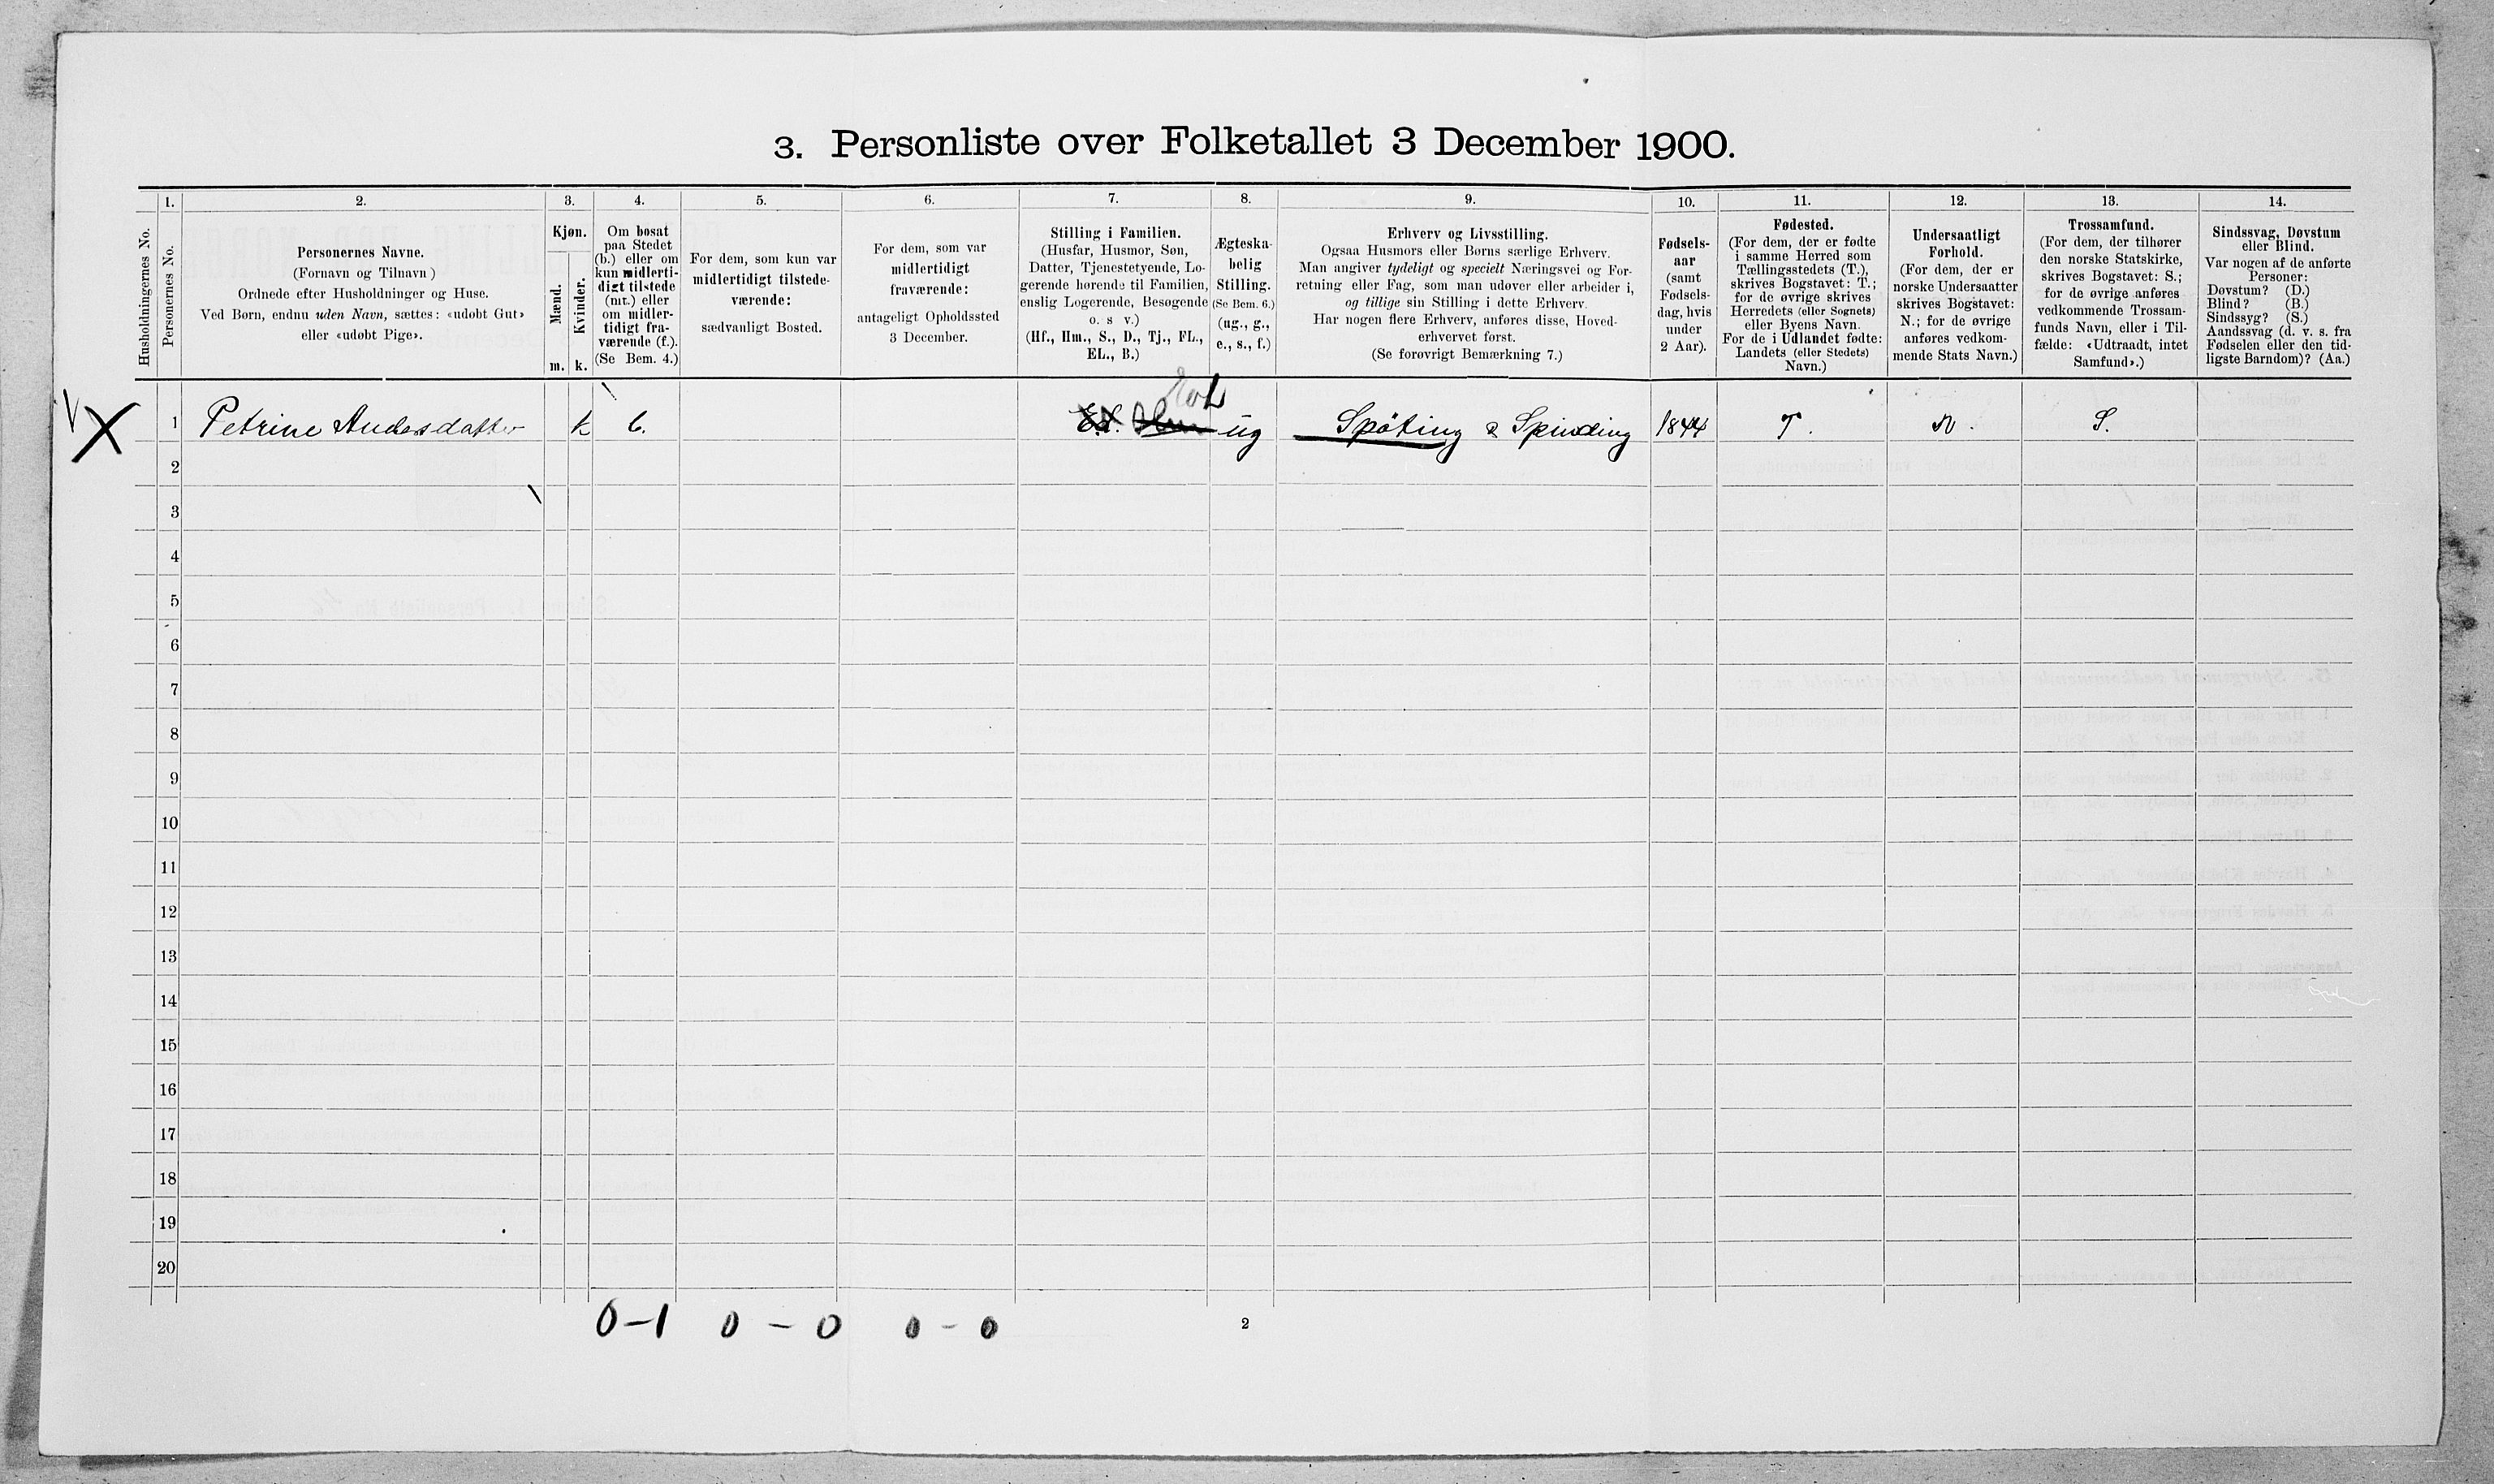 3. Personliste over Folketallet 3 December 1900.
Husholdningernes No.
1.
Personernes No.
2.
Personernes Navne.
(Fornavn og Tilnavn)
Ordnede efter Husholdninger og Huse.
Ved Børn, endnu uden Navn, sættes: «udøbt Gut»
eller «udøbt Pige».
3.
Kjøn.
Mænd.
m.
Kvinder.
k.
4.
Om bosat
paa Stedet
(b.) eller om
kun midlerti-
digt tilstede
(mt.) eller
om midler-
tidigt fra-
værende (f.).
(Se Bem. 4.)
5.
For dem, som kun var
midlertidigt tilstede-
værende:
sædvanligt Bosted.
6.
For dem, som var
midlertidigt
fraværende:
antageligt Opholdssted
3 December.
7.
Stilling i Familien.
(Husfar, Husmor, Søn,
Datter, Tjenestetyende, Lo-
gerende hørende til Familien,
enslig Logerende, Besøgende
o. s v.)
(Hf., Hm., S., D., Tj., FL.,
EL., B.)
8.
Ægteska-
belig
Stilling.
(Se Bem. 6.)
(ug., g.,
e., s., f.)
9.
Erhverv og Livsstilling.
Ogsaa Husmors eller Børns særlige Erhverv.
Man angiver tydeligt og specielt Næringsvei og For-
retning eller Fag, som man udøver eller arbeider i,
og tillige sin Stilling i dette Erhverv.
Har nogen flere Erhverv, anføres disse, Hoved-
erhvervet først.
(Se forøvrigt Bemærkning 7.)
10.
Fødsels-
aar
(samt
Fødsels-
dag, hvis
under
2 Aar).
11.
Fødested.
(For dem, der er fødte
i samme Herred som
Tællingsstedets (T.),
skrives Bogstavet: T.;
for de øvrige skrives
Herredets (eller Sognets)
eller Byens Navn.
For de i Udlandet fødte:
Landets (eller Stedets)
Navn.)
12.
Undersaatligt
Forhold.
(For dem, der er
norske Undersaatter
skrives Bogstavet:
N.; for de øvrige
anføres vedkom-
mende Stats Navn.)
13.
Trossamfund.
(For dem, der tilhører
den norske Statskirke,
skrives Bogstavet: S.;
for de øvrige anføres
vedkommende Trossam-
funds Navn, eller i Til-
fælde: «Udtraadt, intet
Samfund».)
14.
Sindssvag, Døvstum
eller Blind.
Var nogen af de anførte
Personer:
Døvstum? (D.)
Blind? (B.)
Sindssyg? (S.)
Aandssvag (d. v. s. fra
Fødselen eller den tid-
ligste Barndom)? (Aa.)
X 1 Petrine Andersdatter k b. L ug Spøting & Spinding 1844 T. N. S.
2
3
4
5
6
7
8
9
10
11
12
13
14
15
16
17
18
19
20
0-1 0-0 0-0
2